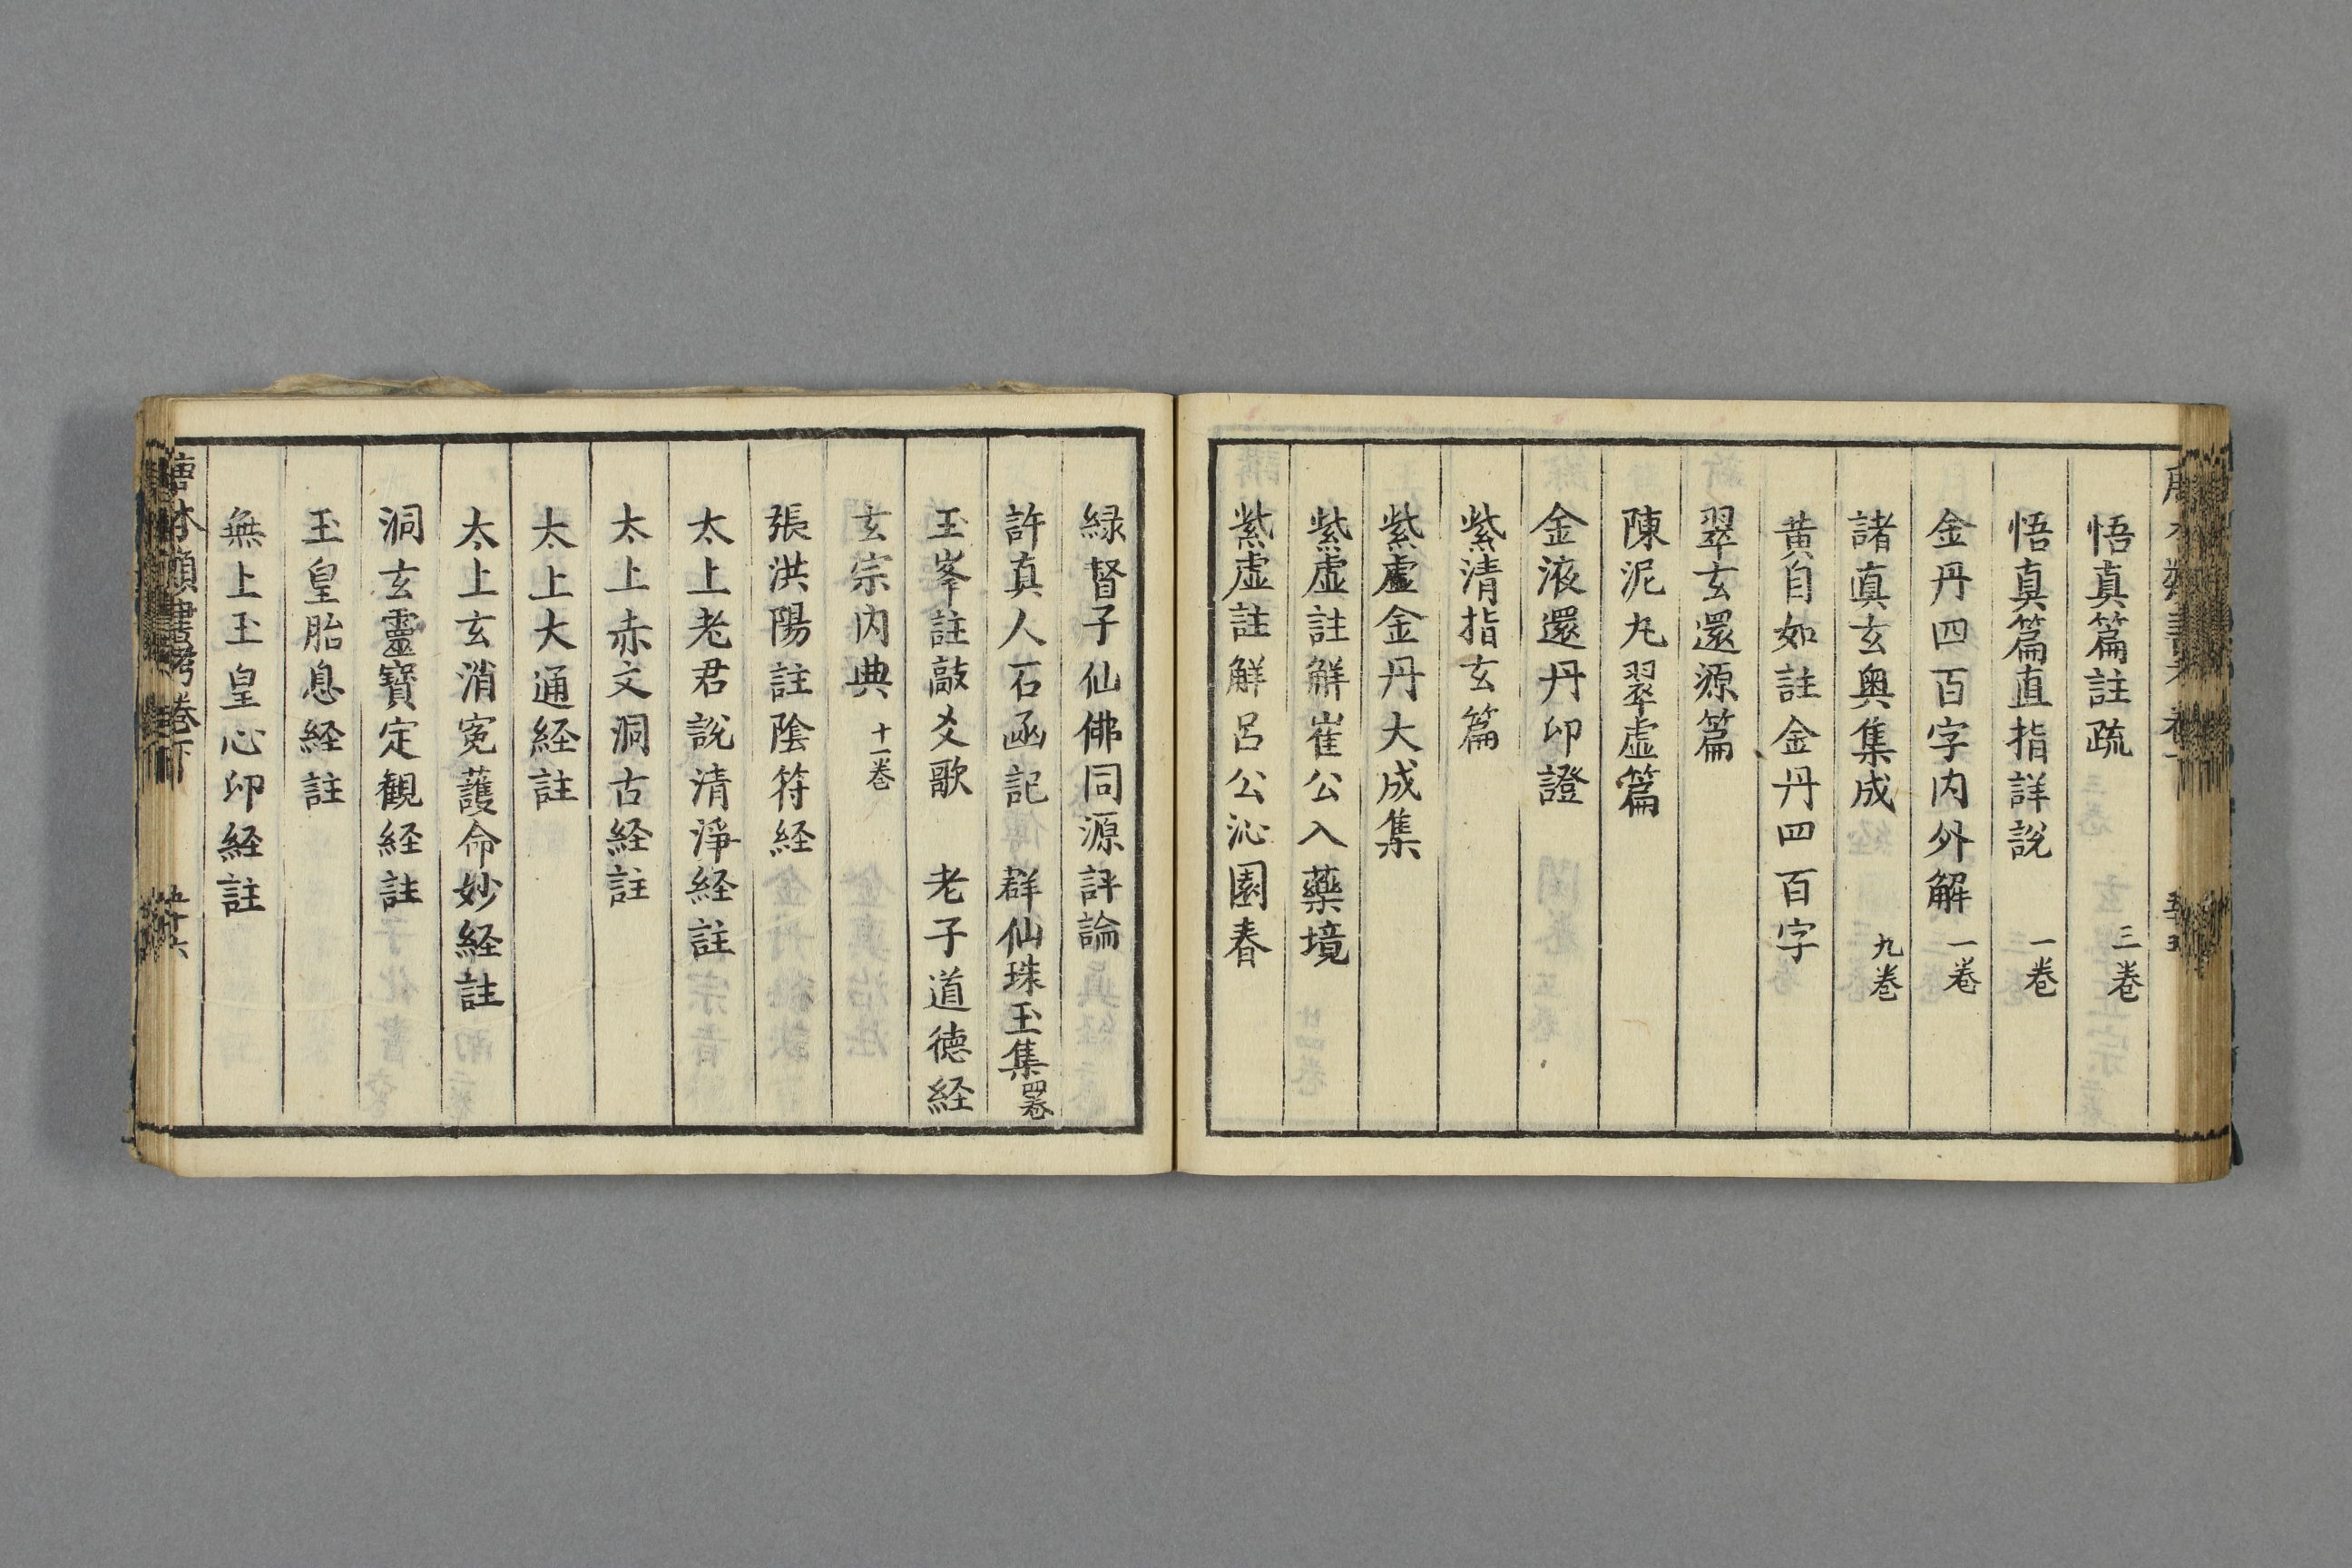 悟真篇註疏 三巻
悟真篇直指詳說 一巻
金丹四百字内外解 一巻
諸真玄奥集成 九巻
黄自如註金丹四百字
翠玄還源篇
陳泥丸翠虚篇
金液還丹印證
紫清指玄篇
紫虚金丹大成集
紫虚註解崔公入藥境
紫虚註解呂公沁園春
緑督子仙佛同源評論
許真人石函記 群仙珠玉集 四巻
玉峯註敲爻歌 老子道德経
玄宗内典 十一巻
張洪陽註陰符経
太上老君說清淨経註
太上赤文洞古経註
太上大通経註
太上玄消寃護命妙経註
洞玄靈寶定観経註
玉皇胎息経註
無上玉皇心印経註
唐本類書考巻下 五十六